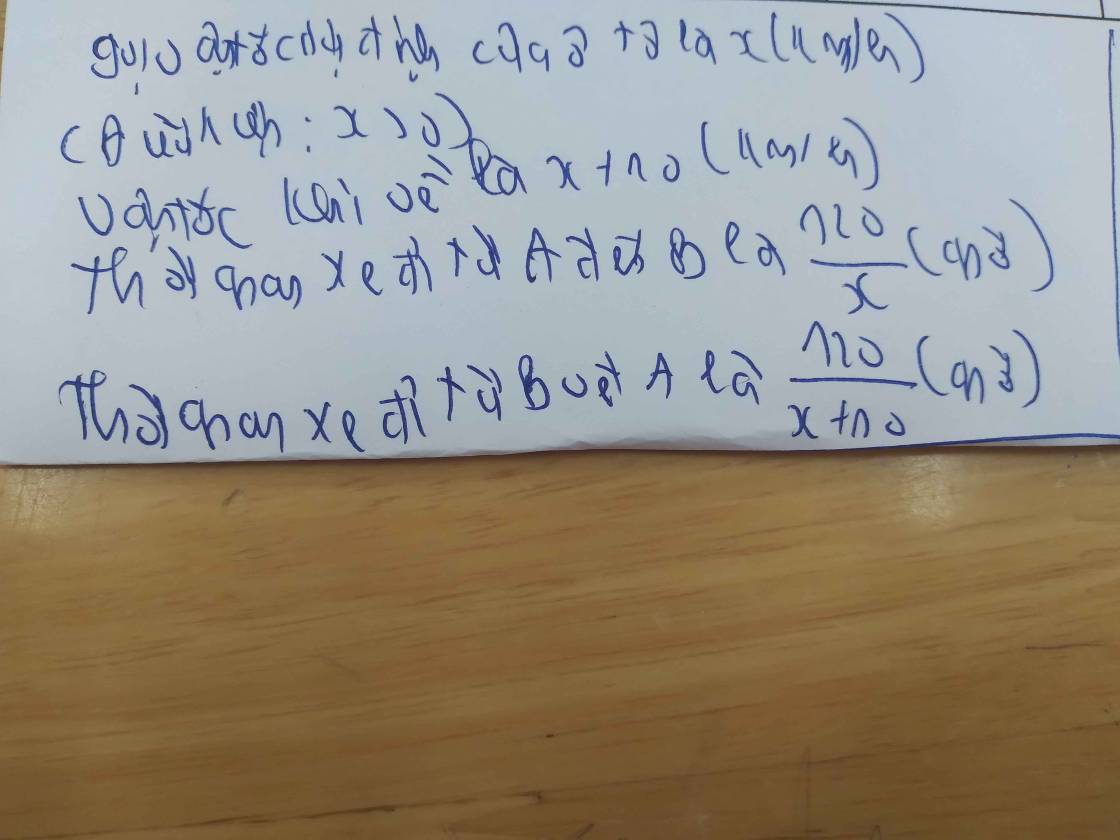 gọi vận tốc dự định của ô tô là x (km/h)
(Điều kiện: x > 0)
vận tốc khi về là x + 10 (km/h)
Thời gian xe đi từ A đến B là 120/x (giờ)
Thời gian xe đi từ B về A là 120/(x+10) (giờ)